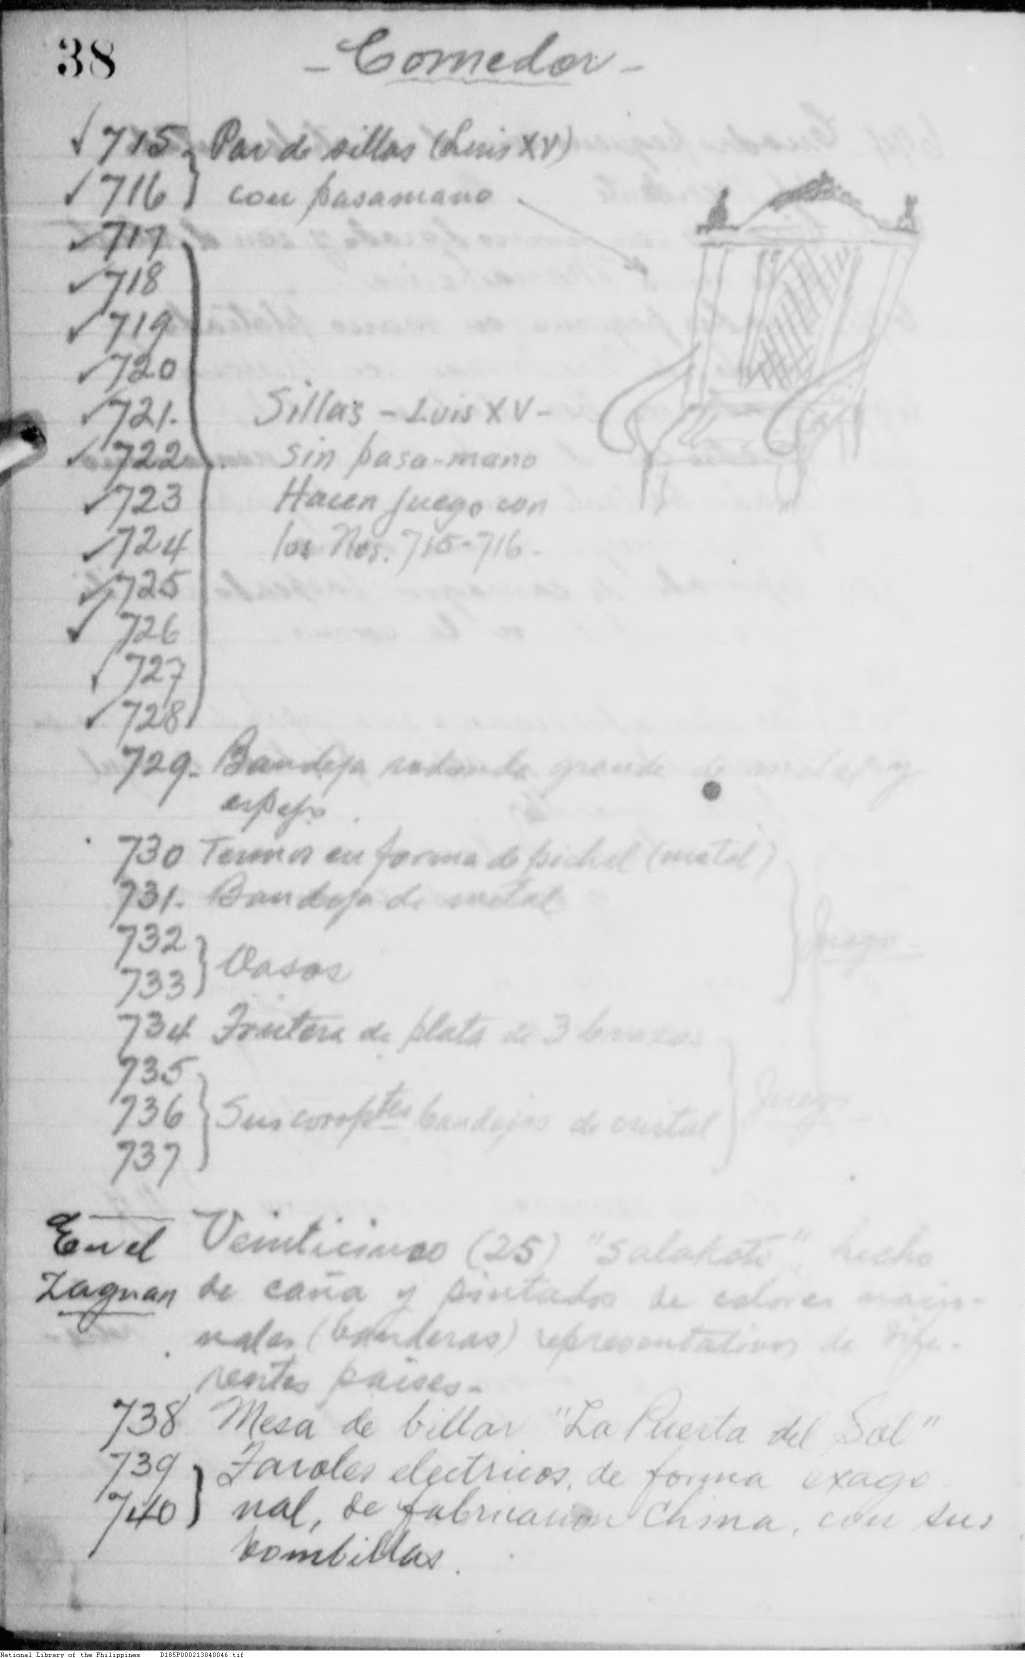 38
- Comedor -
✓ 715 } Par de sillas (Luis XV)
✓ 716 } con pasamano
✓ 717
✓ 718
✓ 719
✓ 720
✓ 721. Sillas - Luis XV -
✓ 722 sin pasa-mano
✓ 723 Hacen juego con
✓ 724 los Nos. 715-716.
✓ 725
✓ 726
✓ 727
✓ 728
729. Bandeja redonda grande de metal y
espejo.
730 Termos en forma de pichel (metal)
731. Bandeja de metal
732 } Juego.
733 } Vasos
734 Frutera de plata de 3 brazos
735
736 } Sus corresptes bandejas de cristal } Juego
737
En el Veinticinco (25) "Salakots" hecho
Zaguan de caña y pintados de colores nacio-
nales (banderas) representativos de dife-
rentes paises -
738 Mesa de billar "La Puerta del Sol"
739 } Faroles electricos, de forma exago
740 } nal, de fabricacion China, con sus
bombillas.
National Library of the Philippines D185P000213840046.tif